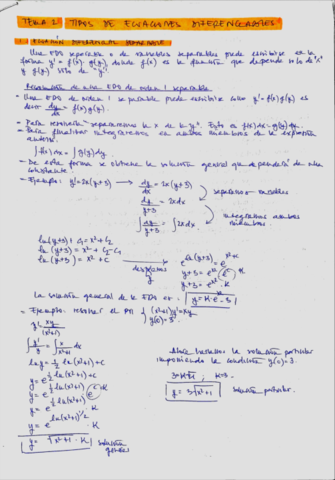 TEMA 2: TIPOS DE ECUACIONES DIFERENCIALES
1. ECUACIÓN DIFERENCIAL SEPARABLE
Una EDO separable o de variables separables puede escribirse en la
forma y' = f(x)·g(y), donde f(x) es la función que depende solo de "x"
y g(y) sólo de "y".
Resolución de una EDO de orden 1 separable
- Una EDO de orden 1 separable, puede escribirse como y' = f(x)·g(y) es
decir dy/dx = f(x)·g(y).
- Para resolverla separaremos la x de la y. Esto es f(x)dx = g(y)dy.
- Para finalizar integraremos en ambos miembros de la expresión
anterior:
∫f(x)dx = ∫g(y)dy
- De esta forma se obtiene la solución general que dependerá de una
constante.
- Ejemplo: y' = 2x(y+3) → dy/dx = 2x(y+3)
separamos variables
dy/y+3 = 2xdx
integramos ambos
miembros
∫dy/y+3 = ∫2xdx
ln(y+3) + C1 = x² + C2
ln(y+3) = x² + C2-C1
ln(y+3) = x² + C
despejamos
y
e^ln(y+3) = e^x²+C
y+3 = e^x² · e^C → K
y+3 = e^x² · K
La solución general de la EDO es: y = K·e^x² - 3
- Ejemplo: resolver el PVI { (x²+1)y' = xy
y(0) = 3
y' = xy/(x²+1)
∫y'/y = ∫x/x²+1 dx
ln y = 1/2 ln(x²+1) + C
y = e^1/2 ln(x²+1) + C
y = e^1/2 ln(x²+1) · e^C → K
y = e^1/2 ln(x²+1) · K
y = e^ln(x²+1)^1/2 · K
y = √x²+1 · K
solución
general
Ahora hallamos la solución particular
imponiendo la condición y(0) = 3.
3 = K√1 ; K = 3
y = 3√x²+1
solución particular.